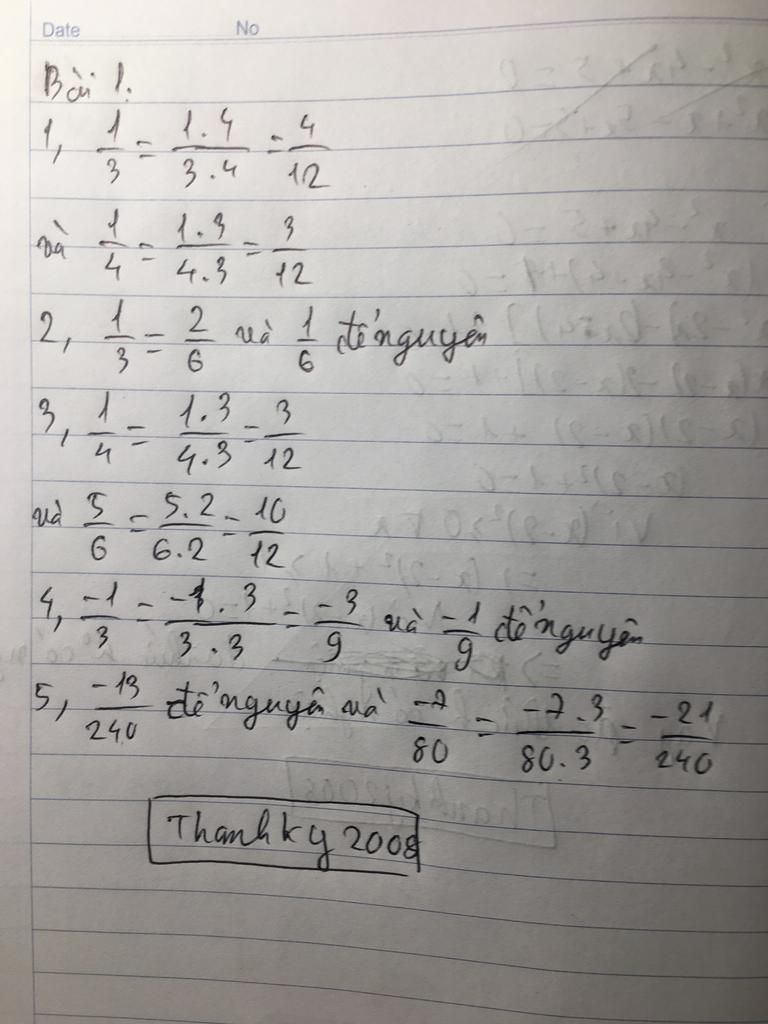 Date No
Bài 1.
1, 1/3 = 1.4/3.4 = 4/12
và 1/4 = 1.3/4.3 = 3/12
2, 1/3 = 2/6 và 1/6 để nguyên
3, 1/4 = 1.3/4.3 = 3/12
và 5/6 = 5.2/6.2 = 10/12
4, -1/3 = -1.3/3.3 = -3/9 và -1/9 để nguyên
5, -13/240 để nguyên và -7/80 = -7.3/80.3 = -21/240
Thanhky 2008